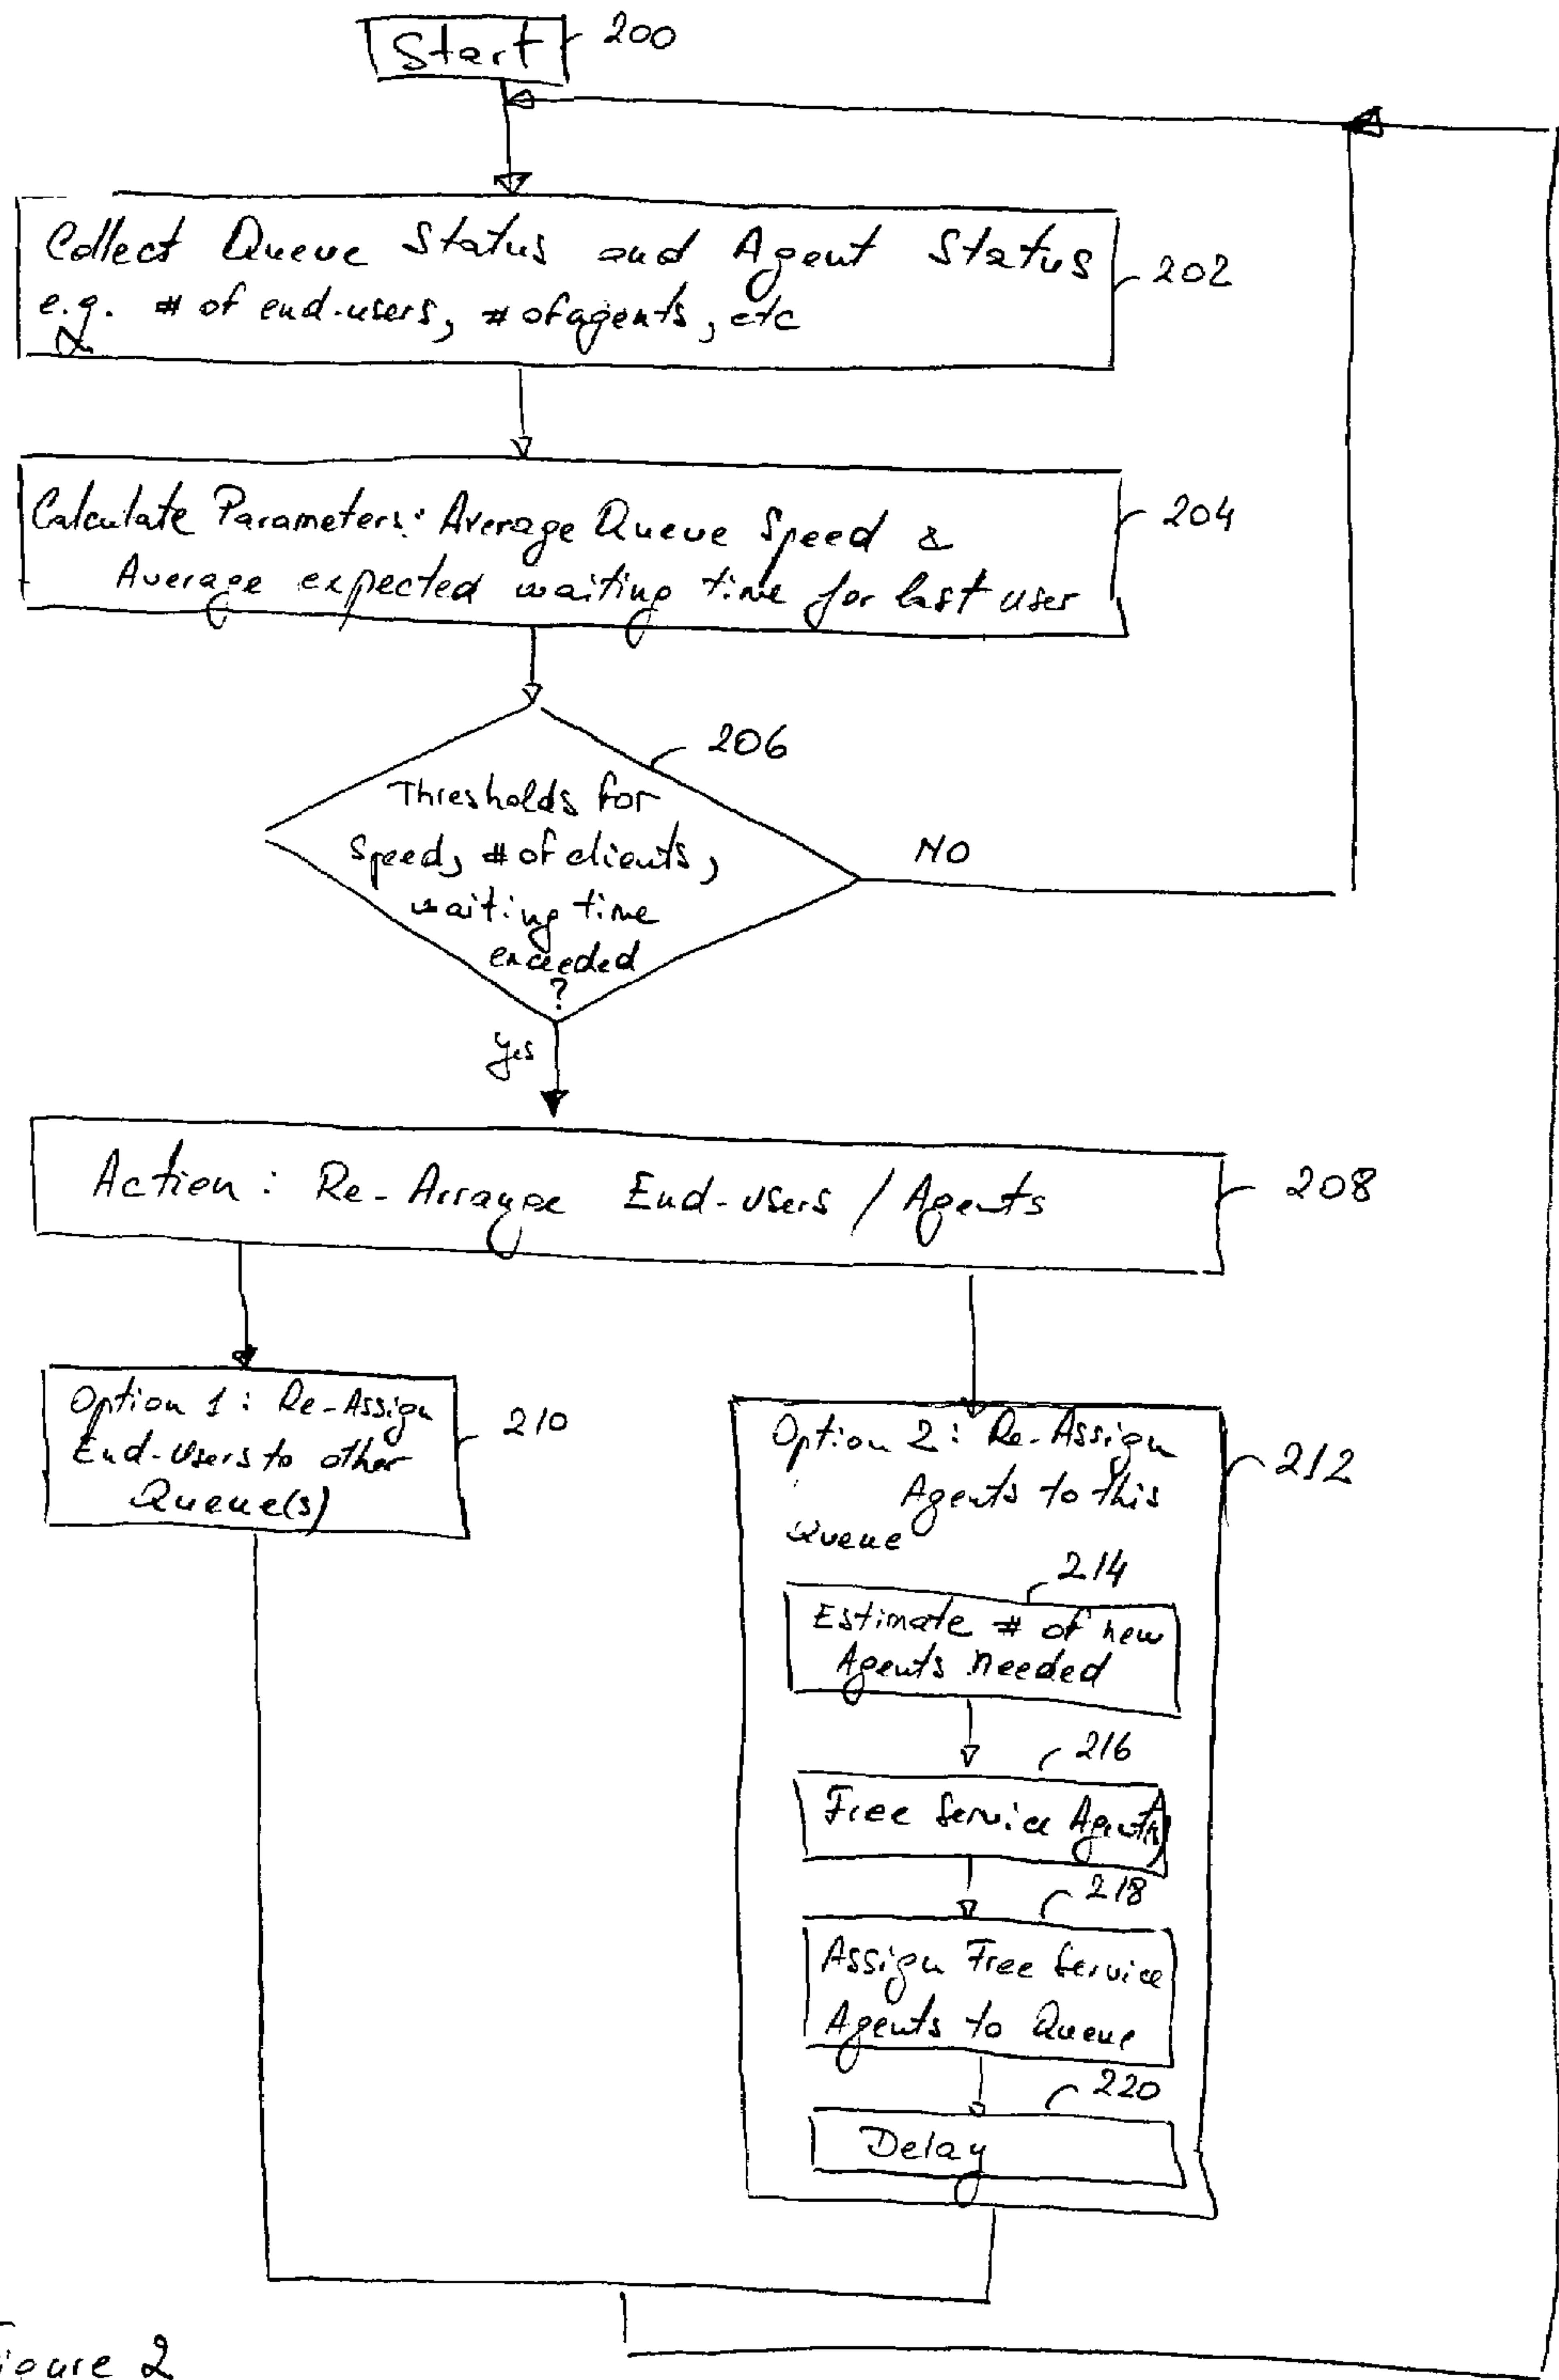 Start
200
Collect Queue Status and Agent Status
e.g. # of end-users, # of agents, etc
202
Calculate Parameters: Average Queue Speed &
Average expected waiting time for last user
204
206
Thresholds for
Speed, # of clients,
waiting time
exceeded
?
NO
Yes
Action: Re-Arrange End-Users / Agents
208
Option 1: Re-Assign
End-Users to other
Queue(s)
210
Option 2: Re-Assign
Agents to this
Queue
212
214
Estimate # of new
Agents needed
216
Free Service Agents
218
Assign Free Service
Agents to Queue
220
Delay
Figure 2